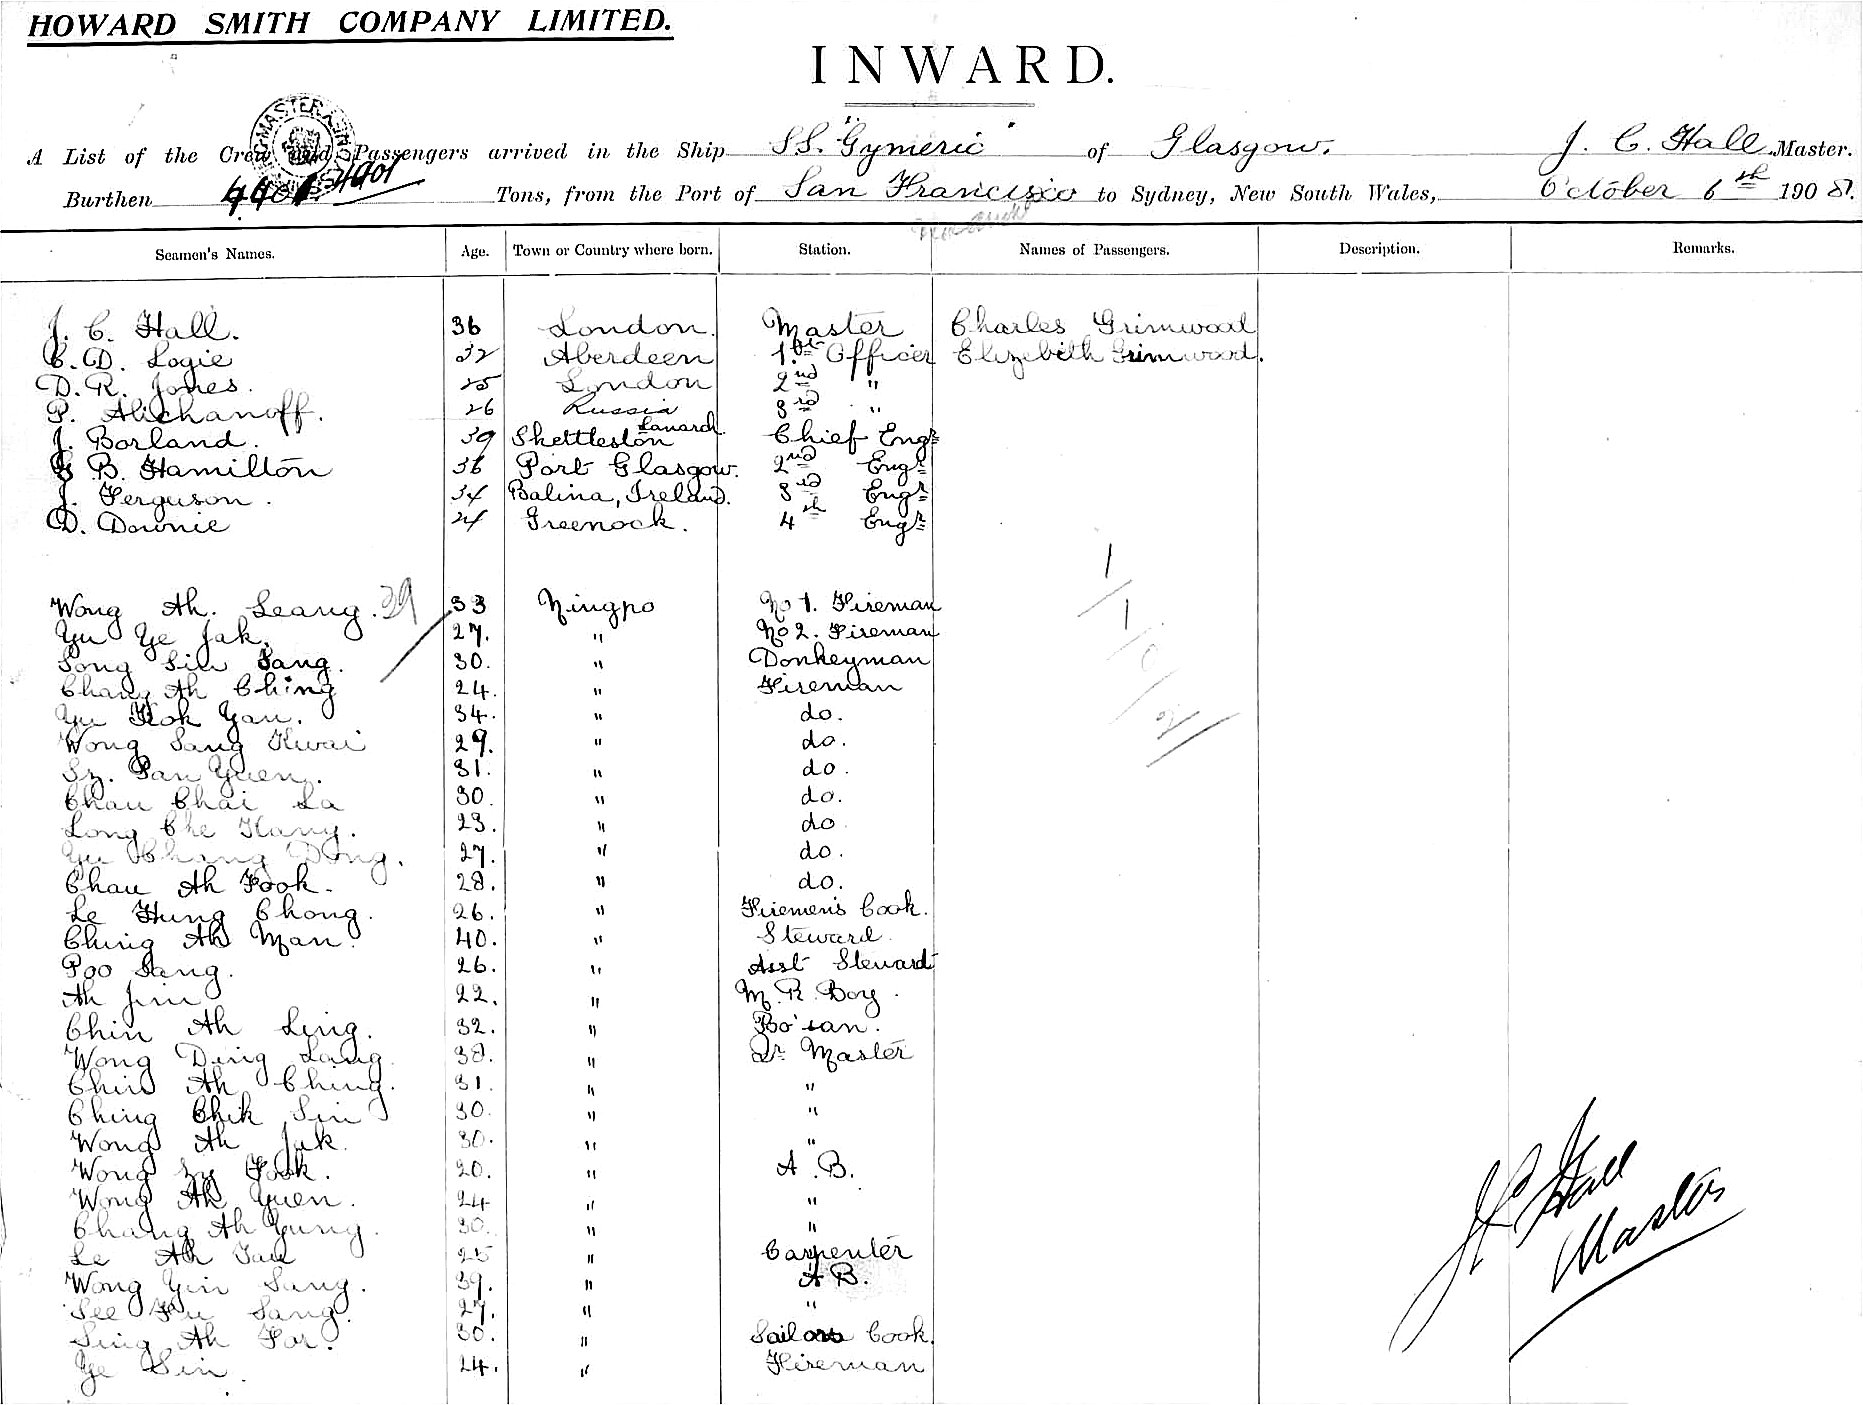 HOWARD SMITH COMPANY LIMITED.
INWARD.
A List of the Crew and Passengers arrived in the Ship SS. "Gymeric" of Glasgow. J. C. Hall Master.
Burthen Tons, from the Port of San Francisco to Sydney, New South Wales, October 6th 1908.
Seamen's Names. Age. Town or Country where born. Station. Names of Passengers. Description. Remarks.
J. C. Hall. 36 London. Master Charles Grimwood
C. D. Logie 32 Aberdeen 1st Officer Elizebeth Grimwood.
D. R. Jones. 25 London 2nd "
P. Alichanoff. 26 Russia 3rd "
J. Borland. 39 Shettleston Lanark Chief Engr
G. B. Hamilton 36 Port Glasgow. 2nd Engr
J. Ferguson. 34 Balina, Ireland. 3rd Engr
D. Downie 24 Greenock. 4th Engr
Wong Ah. Leang. 39 33 Ningpo No 1. Fireman
Yu Ye Jak. 27. " No 2. Fireman
Song Siu Sang. 30. " Donkeyman
Chang Ah Ching 24. " Fireman
Yu Kok Yan. 34. " do.
Wong Sang Kwai 29. " do.
Sz. Pan Yuen. 31. " do.
Chau Chai La 30. " do.
Long Che Kang. 23. " do
Yu Chang Dong. 27. " do.
Chau Ah Fook. 28. " do.
Le Hung Chong. 26. " Firemen's Cook.
Ching Ah Man. 40. " Steward.
Poo Sang. 26. " Asst Steward
Ah Jim 22. " M. R. Boy.
Chin Ah Ling. 32. " Bo'san.
Wong Ding Lang. 38. " Qr Master
Chin Ah Ching. 31. " "
Ching Chik Sin 30. " "
Wong Ah Juk. 30. " "
Wong Sy Fook. 20. " A.B.
Wong Ah Yuen. 24 " "
Chang Ah Yung. 30. " "
Le Ah Tau 25 " Carpenter
Wong Yin Sung. 39. " A B.
See Fu Sang. 27. " "
Sing Ah For. 30. " Sailors Cook.
Ye Sin. 24. " Fireman
J C Hall
Master